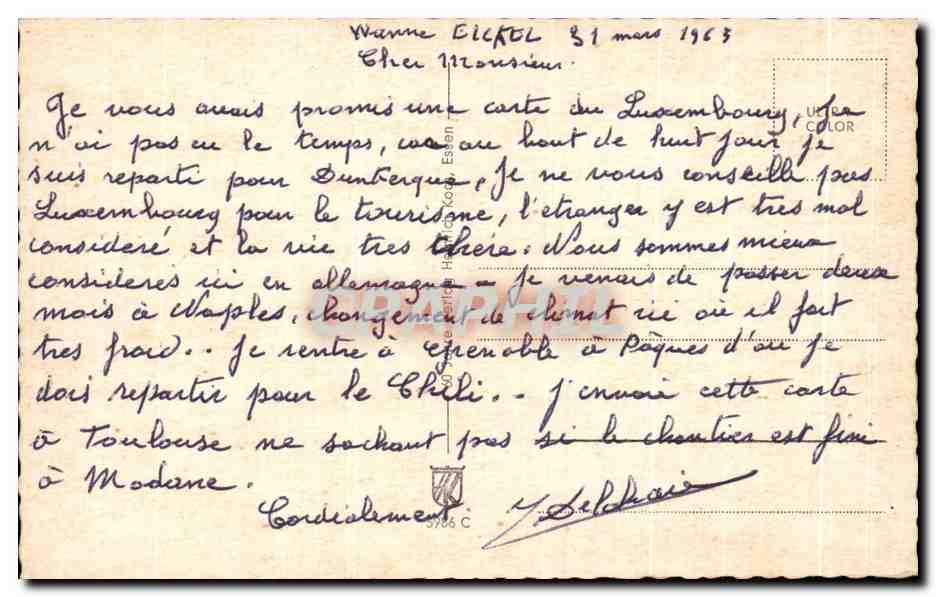 Wanne EICKEL 31 mars 1963
Cher Monsieur.
Je vous avais promis une carte du Luxembourg, Je
n'ai pas eu le temps, car au bout de huit jour je
suis reparti pour Dunkerque, Je ne vous conseille pas
Luxembourg pour le tourisme, l'etranger y est tres mal
consideré et la vie tres chère. Nous sommes mieux
consideres ici en allemagne - Je venais de passer deux
mois à Naples, changement de climat ici où il fait
tres froid.. Je rentre à Grenoble à Pâques d'ou Je
dois repartir pour le Chili.. J'envoie cette carte
à Toulouse ne sachant pas si le chantier est fini
à Modane.
Cordialement
ULTRA
COLOR
Heinrich Koch, Essen
CPAPHIL
HK
5986 C